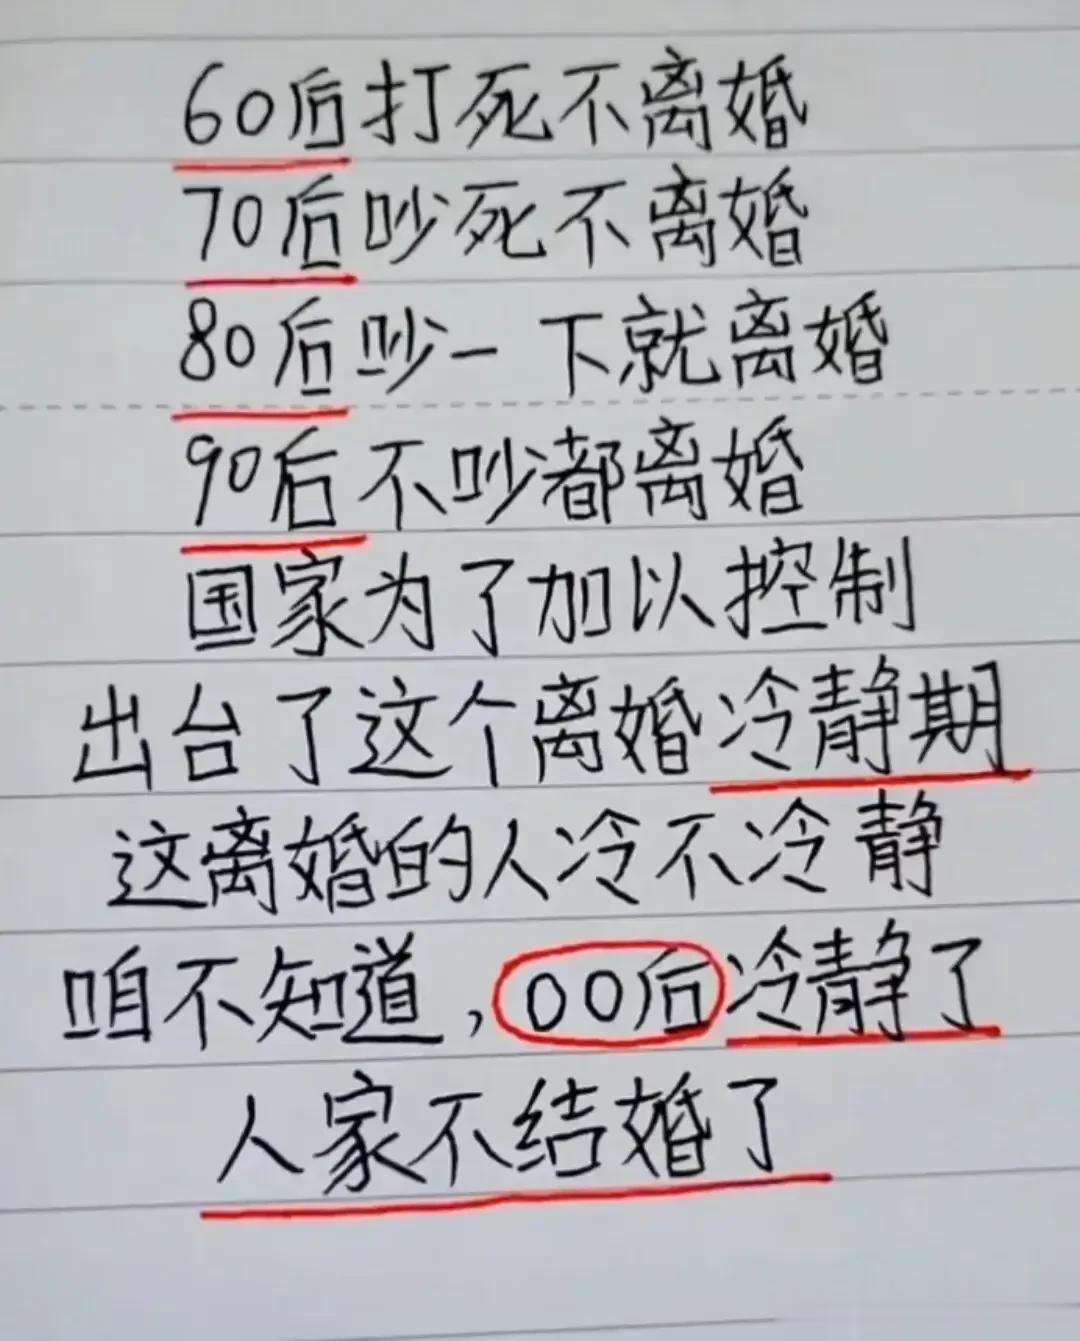 60后打死不离婚
70后吵死不离婚
80后吵一下就离婚
90后不吵都离婚
国家为了加以控制
出台了这个离婚冷静期
这离婚的人冷不冷静
咱不知道，00后冷静了
人家不结婚了